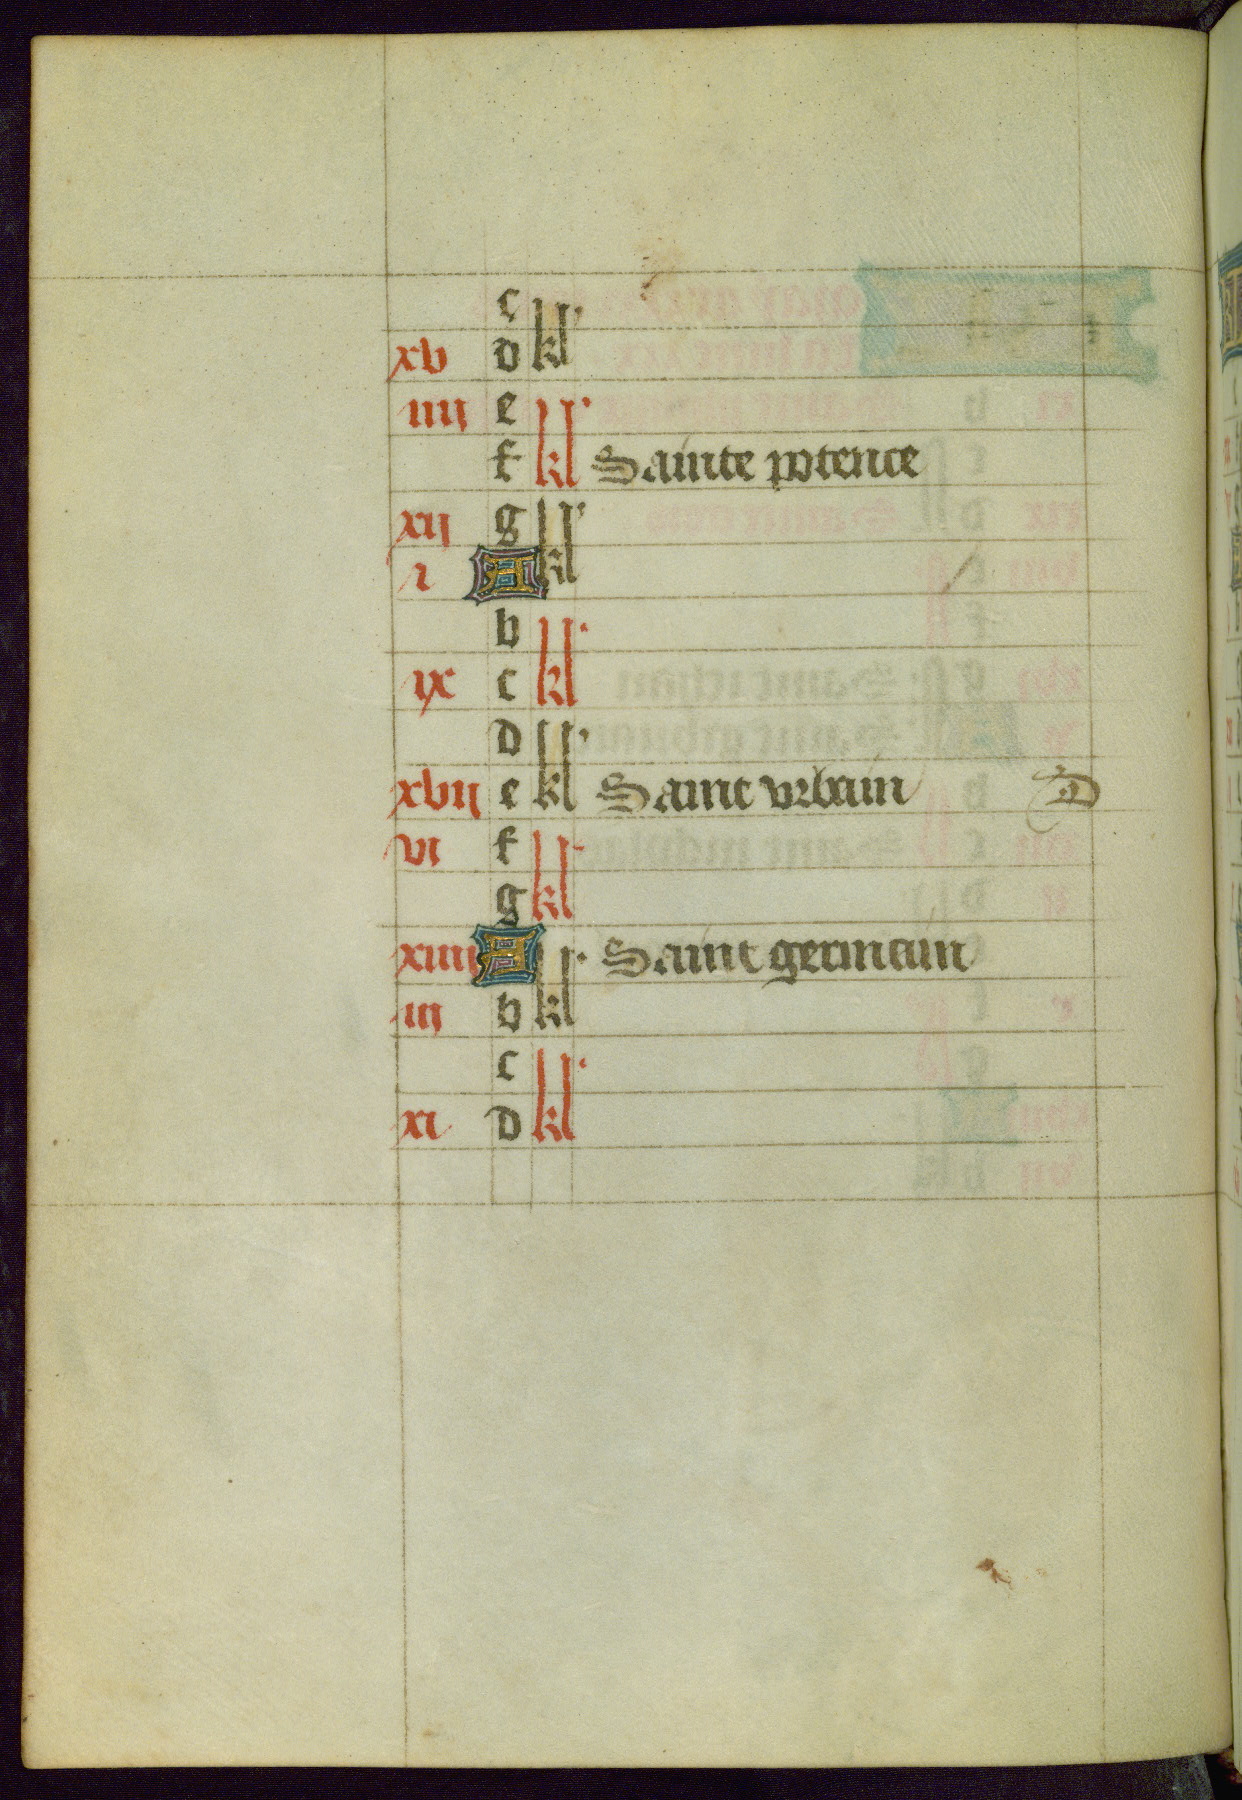 c kl
xv d
iiij e kl
f Sainte potence
xij g kl
i A
b kl
ix c
d kl
xvij e Saint vrbain D
vi f kl
g
xiiij A kl Saint germain
iij b
c kl
xi d